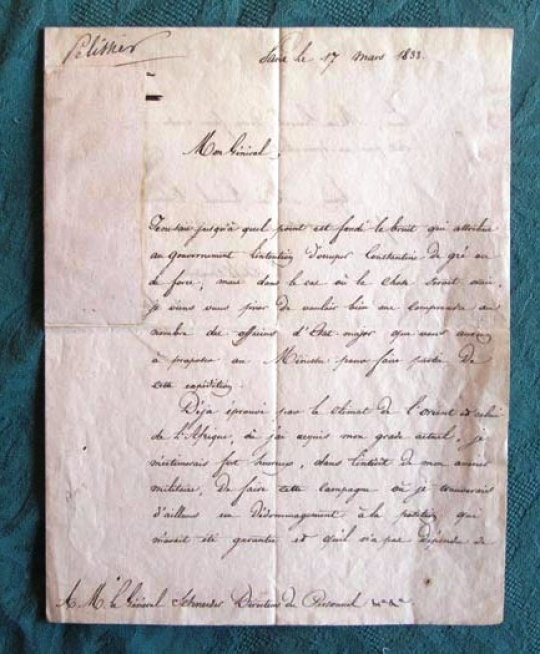 Pelissier
le 17 mars 1833.
Mon Général,
jusqu'à quel point est fondé le bruit qui attribue
au gouvernement l'intention d'occuper Constantine de gré ou
de force, mais dans le cas où la chose serait
je viens vous prier de vouloir bien me comprendre au
nombre des officiers d'Etat major que vous
à proposer au Ministre pour faire partie de
cette expédition.
Déja éprouvé par le climat de l'orient et celui
de l'Afrique, où j'ai acquis mon grade actuel, je
m'estimerais fort heureux, dans l'intérêt de mon avenir
militaire, de faire cette campagne où je trouverais
d'ailleurs un dédommagement à la position qui
m'avait été garantie et qu'il n'a pas dépendu de
A M. le Général Schneider Directeur du Personnel